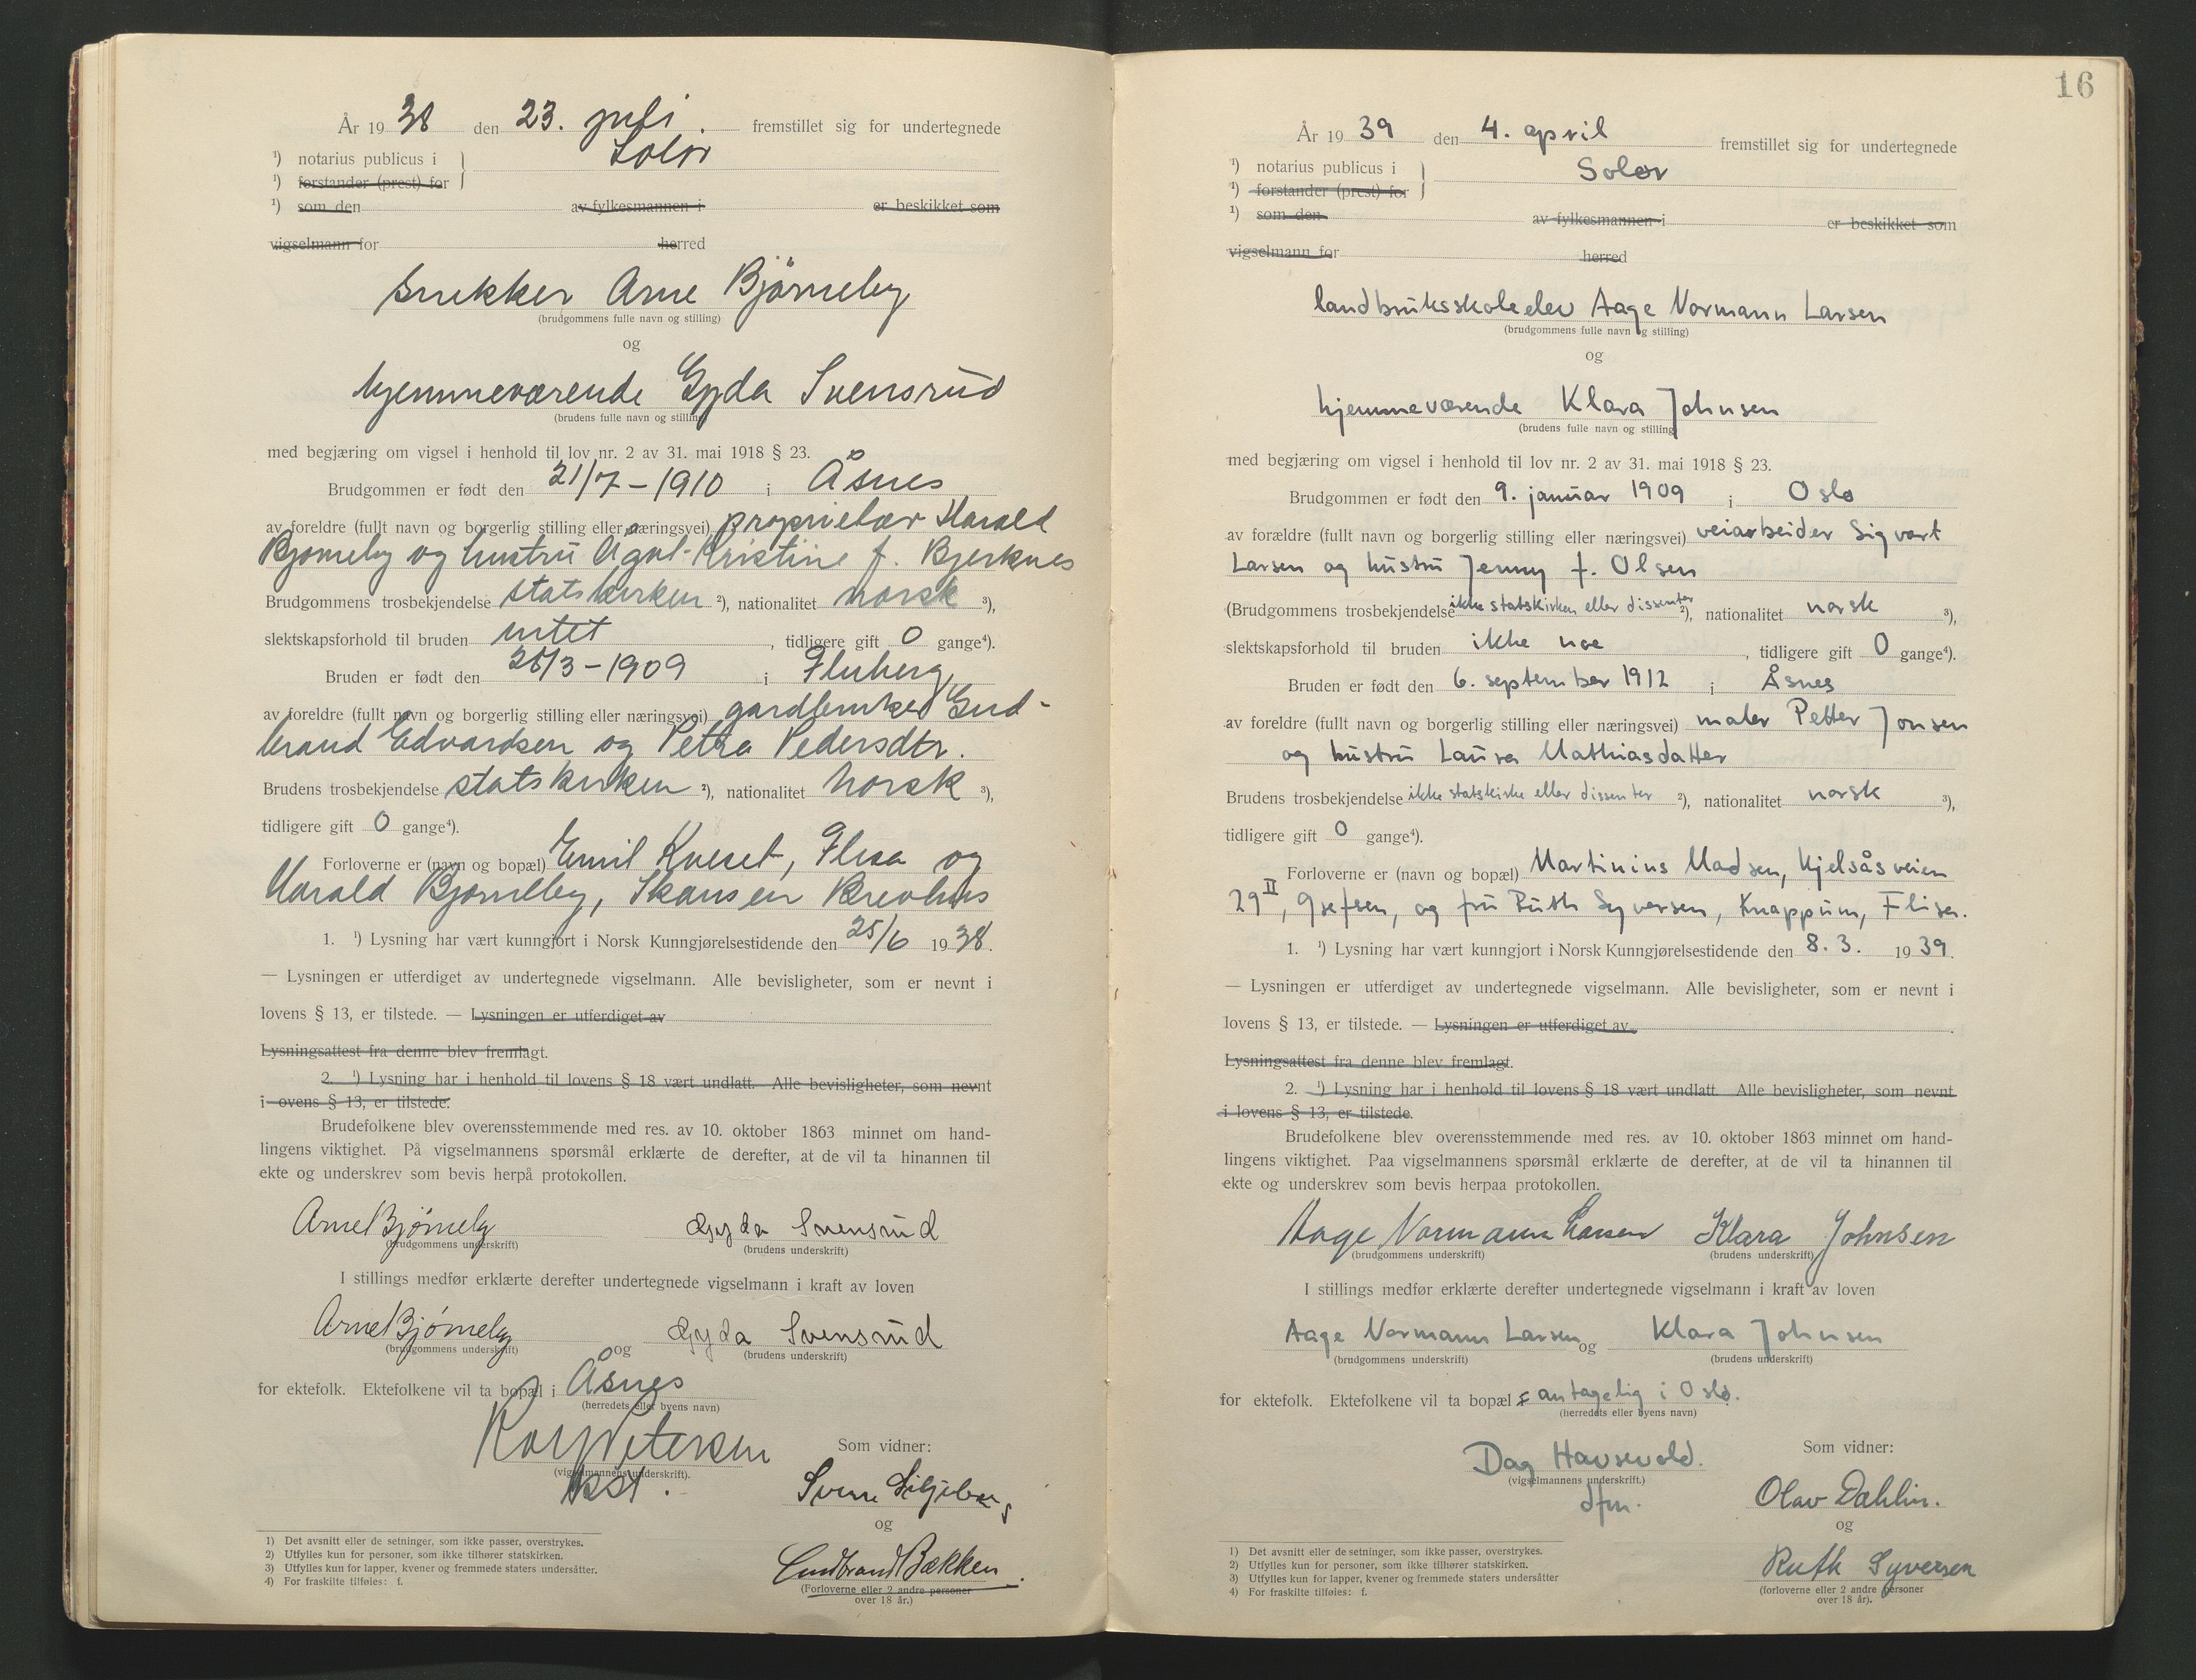 År 19 38 den 23. juli. fremstillet sig for undertegnede
¹) notarius publicus i } Solør
¹) forstander (prest) for
¹) som den av fylkesmannen i er beskikket som
vigselmann for herred
snekker Arne Bjørneby
(brudgommens fulle navn og stilling)
og
hjemmeværende Gyda Svensrud
(brudens fulle navn og stilling)
med begjæring om vigsel i henhold til lov nr. 2 av 31. mai 1918 § 23.
Brudgommen er født den 21/7 - 1910 i Åsnes
av foreldre (fullt navn og borgerlig stilling eller næringsvei) proprietær Harald
Bjørneby og hustru Ågot Kristine f. Bjerknes
Brudgommens trosbekjendelse statskirken ²), nationalitet norsk ³),
slektskapsforhold til bruden intet, tidligere gift 0 gange⁴).
Bruden er født den /3 - 1909 i Fluberg,
av foreldre (fullt navn og borgerlig stilling eller næringsvei) gardbruker Gud-
brand Edvardsen og Petra Pedersdtr.
Brudens trosbekjendelse statskirken ²), nationalitet norsk ³),
tidligere gift 0 gange⁴).
Forloverne er (navn og bopæl) Emil Kveset, Flisa og
Harald Bjørneby, Skansen Brevhus
1. ¹) Lysning har vært kunngjort i Norsk Kunngjørelsestidende den 25/6 1938.
— Lysningen er utferdiget av undertegnede vigselmann. Alle bevisligheter, som er nevnt i
lovens § 13, er tilstede. — Lysningen er utferdiget av
Lysningsattest fra denne blev fremlagt.
2. ¹) Lysning har i henhold til lovens § 18 vært undlatt. Alle bevisligheter, som nevnt
i lovens § 13, er tilstede.
Brudefolkene blev overensstemmende med res. av 10. oktober 1863 minnet om hand-
lingens viktighet. På vigselmannens spørsmål erklærte de derefter, at de vil ta hinannen til
ekte og underskrev som bevis herpå protokollen.
Arne Bjørneby Gyda Svensrud
(brudgommens underskrift) (brudens underskrift)
I stillings medfør erklærte derefter undertegnede vigselmann i kraft av loven
Arne Bjørneby og Gyda Svensrud
(brudgommens underskrift) (brudens underskrift)
for ektefolk. Ektefolkene vil ta bopæl i Åsnes
(herredets eller byens navn)
Petersen Som vidner:
(vigselmannens underskrift).
Sverre Liljeberg
og
Gudbrand Bækken.
(Forloverne eller 2 andre personer
over 18 år.)
1) Det avsnitt eller de setninger, som ikke passer, overstrykes.
2) Utfylles kun for personer, som ikke tilhører statskirken.
3) Utfylles kun for lapper, kvener og fremmede staters undersåtter.
4) For fraskilte tilføies: f.
16
År 19 39 den 4. april fremstillet sig for undertegnede
¹) notarius publicus i } Solør
¹) forstander (prest) for
¹) som den av fylkesmannen i er beskikket som
vigselmann for herred
landbruksskoleelev Aage Normann Larsen
(brudgommens fulle navn og stilling)
og
hjemmeværende Klara Johnsen
(brudens fulle navn og stilling)
med begjæring om vigsel i henhold til lov nr. 2 av 31. mai 1918 § 23.
Brudgommen er født den 9. januar 1909 i Oslo
av forældre (fullt navn og borgerlig stilling eller næringsvei) veiarbeider Sigvart
Larsen og hustru Jenny f. Olsen
(Brudgommens trosbekjendelse ikke statskirken eller dissenter ²), nationalitet norsk ³),
slektskapsforhold til bruden ikke noe, tidligere gift 0 gange⁴).
Bruden er født den 6. september 1912 i Åsnes
av foreldre (fullt navn og borgerlig stilling eller næringsvei) maler Petter Jonsen
og hustru Laura Mathiasdatter
Brudens trosbekjendelse ikke statskirke eller dissenter ²), nationalitet norsk ³),
tidligere gift 0 gange⁴).
Forloverne er (navn og bopæl) Martinius Madsen, Kjelsåsveien
29 II, Grefsen, og fru Ruth Syversen, Knappum, Flisa.
1. ¹) Lysning har vært kunngjort i Norsk Kunngjørelsestidende den 8. 3. 1939.
— Lysningen er utferdiget av undertegnede vigselmann. Alle bevisligheter, som er nevnt i
lovens § 13, er tilstede. — Lysningen er utferdiget av .
Lysningsattest fra denne blev fremlagt.
2. ¹) Lysning har i henhold til lovens § 18 vært undlatt. Alle bevisligheter, som nevnt
i lovens § 13, er tilstede.
Brudefolkene blev overensstemmende med res. av 10. oktober 1863 minnet om hand-
lingens viktighet. Paa vigselmannens spørsmål erklærte de derefter, at de vil ta hinannen til
ekte og underskrev som bevis herpaa protokollen.
Aage Normann Larsen Klara Johnsen
(brudgommens underskrift) (brudens underskrift)
I stillings medfør erklærte derefter undertegnede vigselmann i kraft av loven
Aage Normann Larsen og Klara Johnsen
(brudgommens underskrift) (brudens underskrift)
for ektefolk. Ektefolkene vil ta bopæl i antagelig i Oslo.
(herredets eller byens navn)
Dag Hausevold. Som vidner:
(vigselmannens underskrift.)
dfm. Olav Dahlin.
og
Ruth Syversen
(forloverne eller 2 andre personer
over 18 år).
1) Det avsnitt eller de setninger, som ikke passer, overstrykes.
2) Utfylles kun for personer, som ikke tilhører statskirken.
3) Utfylles kun for lapper, kvener og fremmede staters undersåtter
4) For fraskilte tilføies: f.